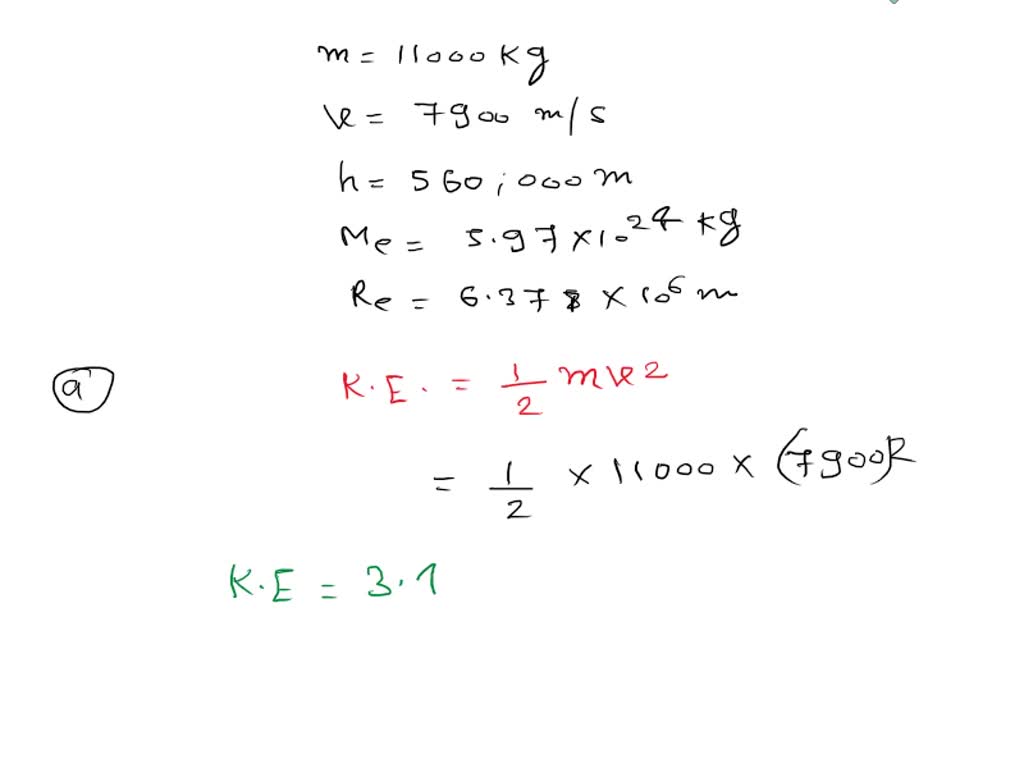 m = 11000 kg
v = 7900 m/s
h = 560,000 m
Me = 5.97 × 10^24 kg
Re = 6.378 × 10^6 m
(a) K.E. = 1/2 mv2
= 1/2 × 11000 × (7900)2
K.E = 3.1